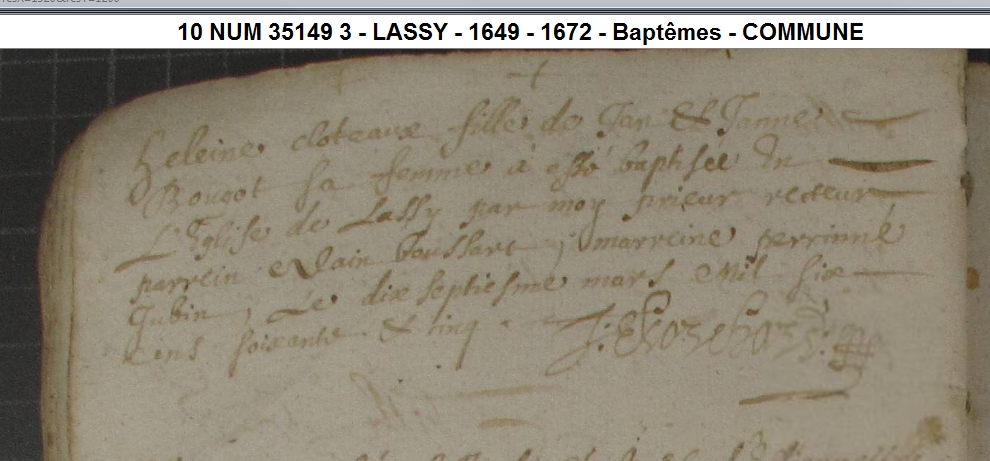 10 NUM 35149 3 - LASSY - 1649 - 1672 - Baptêmes - COMMUNE
heleine cloteaux fille de Jan Et Janne
Bougot sa femme a esté baptisée En
L'Eglise de Lassy par moy prieur recteur
parrein Alain boussart, marreine perrinne
Gubin, Le dix septiesme mars Mil six
cens soixante & cinq